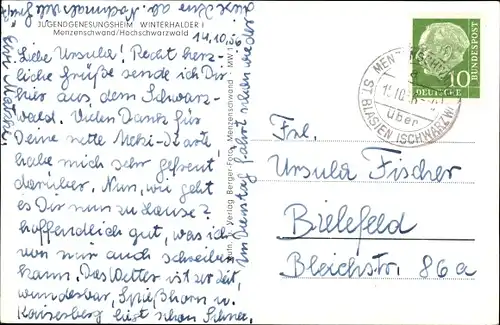 JUGENDGENESUNGSHEIM WINTERHALDER I
Menzenschwand/Hochschwarzwald
14.10.56
Liebe Ursula! Recht herz-
liche Grüße sende ich Dir
hier aus dem Schwarz-
wald. Vielen Dank für
Deine nette Meki-Karte
habe mich sehr gefreut
darüber. Nun, wie geht
es Dir nun zu Hause?
hoffendlich gut, was ich
von mir auch schreiben
kann. Das Wetter ist zur Zeit,
wunderbar, Spießhorn u.
Kaiserberg liegt schon Schnee.
Am Dienstag fahrt schon wieder
Verlag Berger-Foto, Menzenschwand - MW 1
MENZENSCHWAND
über
ST. BLASIEN (SCHWARZW)
10
DEUTSCHE
BUNDESPOST
Frl.
Ursula Fischer
Bielefeld
Bleichstr. 86a